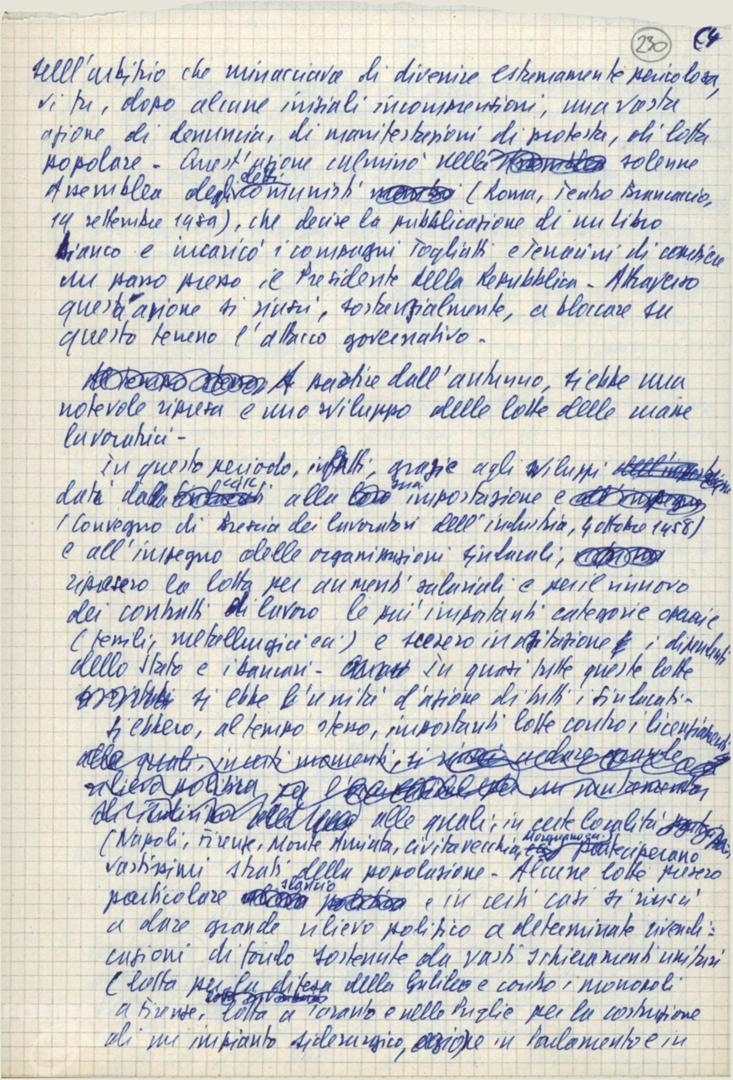 230 (4
dell'arbitrio che minacciava di divenire estremamente pericolosa,
vi fu, dopo alcune iniziali incomprensioni, una vasta
azione di denuncia, di manifestazioni di protesta, di lotta
popolare - Quest'azione culminò nella solenne
Assemblea degli eletti comunisti (Roma, Teatro Brancaccio,
14 settembre 1959), che decise la pubblicazione di un libro
bianco e incaricò i compagni Togliatti e Terracini di
un passo presso il Presidente della Repubblica - Attraverso
quest'azione si riuscì, sostanzialmente, a bloccare su
questo terreno l'attacco governativo -
A partire dall'autunno, si ebbe una
notevole ripresa e uno sviluppo delle lotte delle masse
lavoratrici -
In questo periodo, infatti, grazie agli sviluppi
dati dalla alla impostazione e
(Convegno di Brescia dei lavoratori dell'industria, 4 ottobre 1958)
e all'impegno delle organizzazioni sindacali,
ripresero la lotta per aumenti salariali e per il rinnovo
dei contratti di lavoro le più importanti categorie operaie
(tessili, metallurgici ecc) e scesero in agitazione i dipendenti
dello Stato e i bancari - In quasi tutte queste lotte
si ebbe l'unità d'azione di tutti i sindacati -
Si ebbero, al tempo stesso, importanti lotte contro i licenziamenti
alle quali, in certi momenti, si a dare grande
rilievo politico
alle quali, in certe località
(Napoli, Firenze, Monte Amiata, Civitavecchia, parteciparono
vastissimi strati della popolazione - Alcune lotte presero
particolare slancio e in certi casi si riuscì
a dare grande rilievo politico a determinate rivendi=
cazioni di fondo sostenute da vasti schieramenti unitari
(lotta per la difesa della Galileo e contro i monopoli
a Firenze, lotta a Taranto e nelle Puglie per la costruzione
di un impianto siderurgico, azione in Parlamento e in